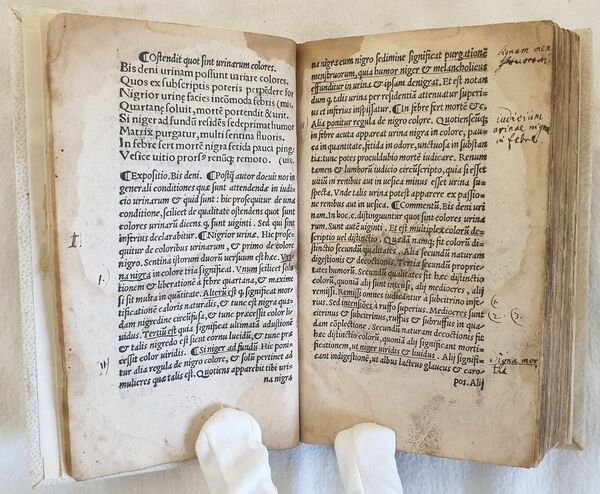 ¶Ostendit quot sint urinarum colores.
Bis deni urinam possunt uariare colores.
Quos ex subscriptis poteris perpēdere for
Nigrior urine facies incōmoda febris (mis,
Quartanę soluit, mortē portendit & urit.
Si niger ad fundū resides sede primat humor
Matrix purgatur, multi sentina fluoris.
In febre fert mortē nigra fetida pauca pingʼ
Vesice uitio prorsʼ renūq; remoto. (uis.
¶Expositio. Bis deni. ¶Postq̃ autor docuit nos in
generali conditiones quę sunt attendendę in iudi-
cio urinarum & quid sunt: hic prosequitur de una
conditione, scilicet de qualitate ostendens quot sunt
colores urinarū dicens q. sunt uiginti. Sed qui sint
inferius declarabitur. ¶Nigrior urina. Hic prose-
quitur de coloribus urinarum, & primo de colore
nigro. Sentina istorum duorū uersuum est hęc. Vri-
na nigra in colore tria significat. Vnum scilicet solu-
tionem & liberationē a febre quartana, & maxime
si sit multa in quātitate. Alterū est q. significat mor-
tificationē caloris naturalis, & tunc est nigra quę-
dam nigredine circūfusa, & tunc pręcessit color liui-
dus. Tertiū est quia significat ultimatā adustionē
& talis nigredo est sicut cornu lucidū, & tunc pręces-
sit color uiridis. ¶Si niger ad fundū Hic poni-
tur alia regula de nigro colore, & solū pertinet ad
mulieres quę talis est. Quotiens apparebit tibi uri-
na nigra
I.
I.
II
na nigra cum nigro sedimine significat purgationē
menstruorum, quia humor niger & melancholicus
effunditur in urina & ipsam denigrat. Et est notan
dum q. talis urina per residentiā attenuatur superi-
us et inferius inspissatur. ¶In febre fert mortē &c.
Alia ponitur regula de nigro colore. Quotienscūq;
in febre acuta appareat urina nigra in colore, pau-
ca in quātitate, fetida in odore, unctuosa in substan
tia; tunc potes proculdubio mortē iudicare. Renum
tamen & lumborū iudicio circūscripto, quia si esset
uitiū in renibus aut in uesica minus esset urina su-
specta. Vnde talis urina potest apparere ex passio-
ne renibus aut in uesica. ¶Commentū. Bis deni uri
nam. In hoc. c. distinguuntur quot sint colores urinę
rum. Sunt autē uiginti. Et est multiplex colorū de-
scriptio uel distinctio. Quędā namq; fit colorū di-
stinctio secundū actionem naturę. Secunda secundū
digestionis & decoctionis. Tertia secundū proprie-
tates humorū. Secundū qualitates fit hęc distinctio
colorū, quoniā alij sunt intensi, alij mediocres, alij
remissi. Remissi omnes iudicantur a subcitrino infe-
rius. Sed intensiores a ruffo superius. Mediocres sunt
& subcitrinus, ruffus & subruffus in quan-
dam cōplectione. Secundū naturam decoctionis fit
talis colorū distinctio, quoniā alij significant morti-
ficationem, ut niger uiridis & liuidus. Alij signifi-
cant indigestionē, ut albus lacteus glaucus & caro-
pos. Alij
signum men
struorum.
iudicium
urinae nigrae
in febre
(1.
(2. (3.
signa mor
tis